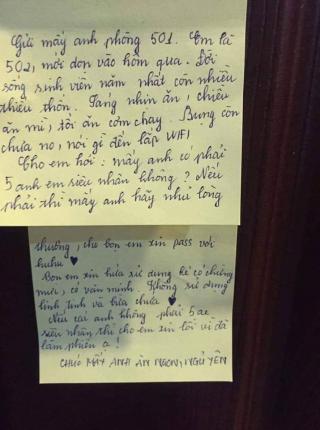 Gửi mấy anh phòng 501. Em là
502, mới dọn vào hôm qua. Đời
sống sinh viên năm nhất còn nhiều
thiếu thốn. Sáng nhịn ăn, chiều
ăn mì, tối ăn cơm chay. Bụng còn
chưa no, nói gì đến lắp WIFI
Cho em hỏi: mấy anh có phải
5 anh em siêu nhân không? Nếu
phải thì mấy anh hãy rủ lòng
thương, cho bọn em xin pass với
huhu ♥
Bọn em xin hứa sử dụng kẻ có chiêng
mực, có văn minh. Không sử dụng
linh tinh và bừa
Nếu các anh không phải 5 ae
siêu nhân thì cho em xin lỗi vì đã
làm phiền ạ!
CHÚC MẤY ANH ĂN NGON, NGỦ YÊN